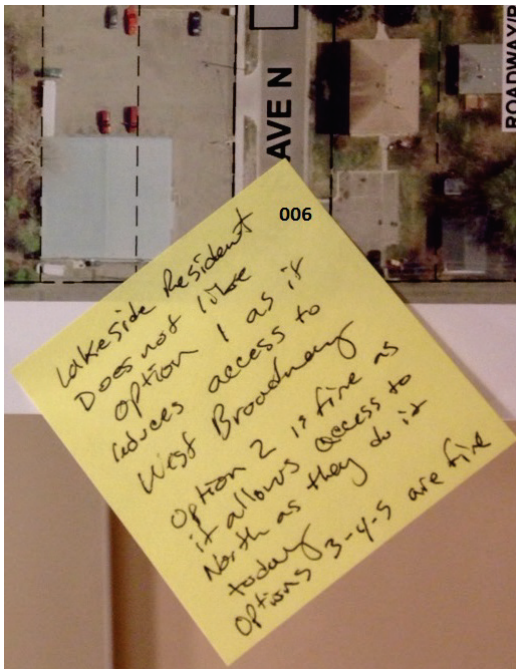 AVE N
ROADWAY/R
006
Lakeside Resident
Does not like
option 1 as it
reduces access to
West Broadway
option 2 is fine as
it allows access to
North as they do it
today
options 3-4-5 are fine